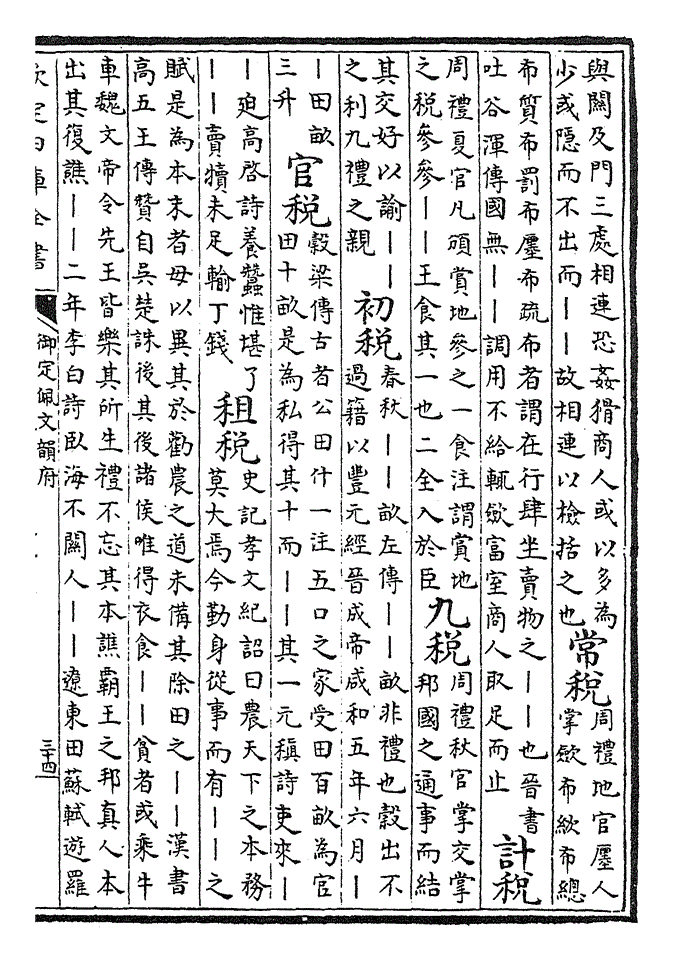 與關及門三處相連恐姦猾商人或以多為
少或隱而不出而｜｜故相連以檢括之也
常稅
周禮地官廛人
掌斂布絘布總
布質布罰布廛布疏布者謂在行肆坐賣物之｜｜也晉書
吐谷渾傳國無｜｜調用不給輒斂富室商人取足而止
計稅
周禮夏官凡頒賞地參之一食注謂賞地
之稅參參｜｜王食其一也二全入於臣
九稅
周禮秋官掌交掌
邦國之通事而結
其交好以諭｜｜
之利九禮之親
初稅
春秋｜｜畝左傳｜｜畝非禮也榖出不
過籍以豐元經晉成帝咸和五年六月｜
｜田畝
三升
官稅
榖梁傳古者公田什一注五口之家受田百畝為官
田十畝是為私得其十而｜｜其一元稹詩吏來｜
｜廹高啓詩養蠶惟堪了
｜｜賣犢未足輸丁錢
租稅
史記孝文紀詔曰農天下之本務
莫大焉今勤身從事而有｜｜之
賦是為本末者毋以異其於勸農之道未備其除田之｜｜漢書
高五王傳贊自吳楚誅後其後諸侯唯得衣食｜｜貧者或乘牛
車魏文帝令先王皆樂其所生禮不忘其本譙覇王之邦真人本
出其復譙｜｜二年李白詩臥海不關人｜｜遼東田蘇軾遊羅
欽定四庫全書
御定佩文韻府
三十四